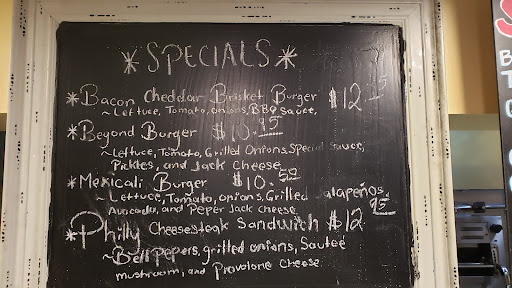 *SPECIALS*
*Bacon Cheddar Brisket Burger $12.95
~Lettuce, Tomato, onions, BBQ Sauce,
*Beyond Burger $10.95
~Lettuce, Tomato, Grilled Onions, Special Sauce,
Pickles, and Jack Cheese
*Mexicali Burger $10.50
~Lettuce, Tomato, onions, Grilled Jalapeños,
Avocado, and Peper Jack Cheese
*Philly Cheesesteak Sandwich $12.95
~Bell Pepers, grilled onions, Sauteé
mushroom, and Provolone Cheese